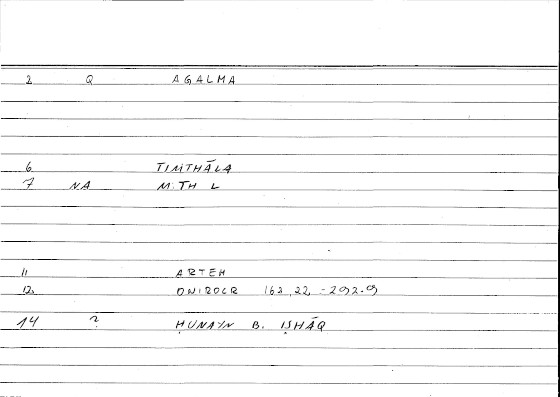 2 Q AGALMA
6 TIMTHĀLA
7 NA M TH L
11 ARTEM
12 ONIROCR 162,22 - 292.9
14 ? ḤUNAYN B. ISḤĀQ